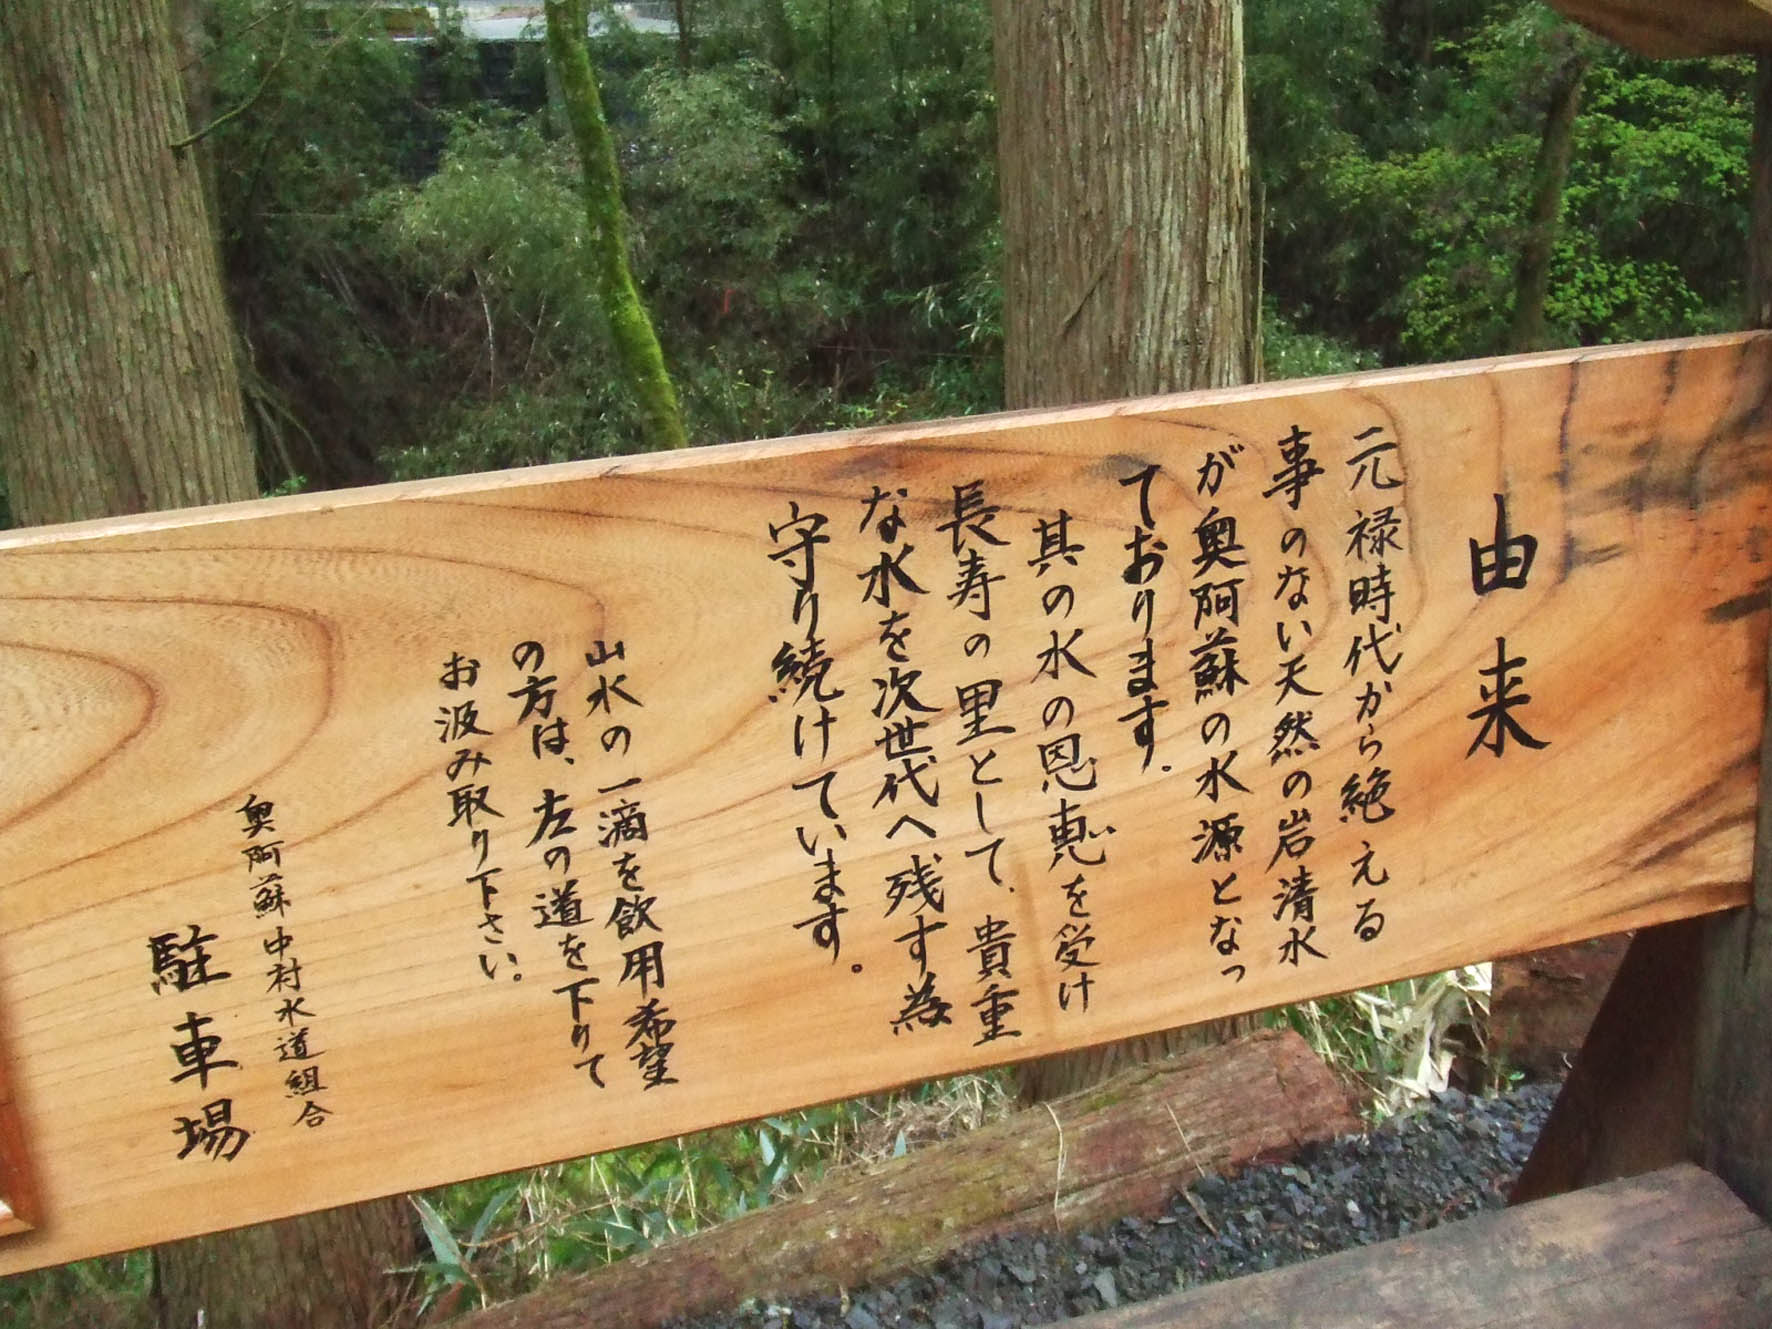 由来
元禄時代から絶える
事のない天然の岩清水
が奥阿蘇の水源となっ
ております。
其の水の恩恵を受け
長寿の里として、貴重
な水を次世代へ残す為
守り続けています。
山水の一滴を飲用希望
の方は、左の道を下りて
お汲み取り下さい。
奥阿蘇中村水道組合
駐車場